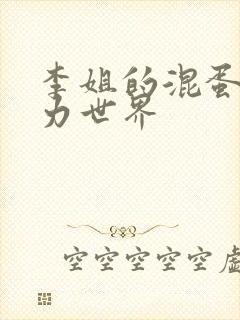 李姐的混蛋
力世界
空空空空空虚